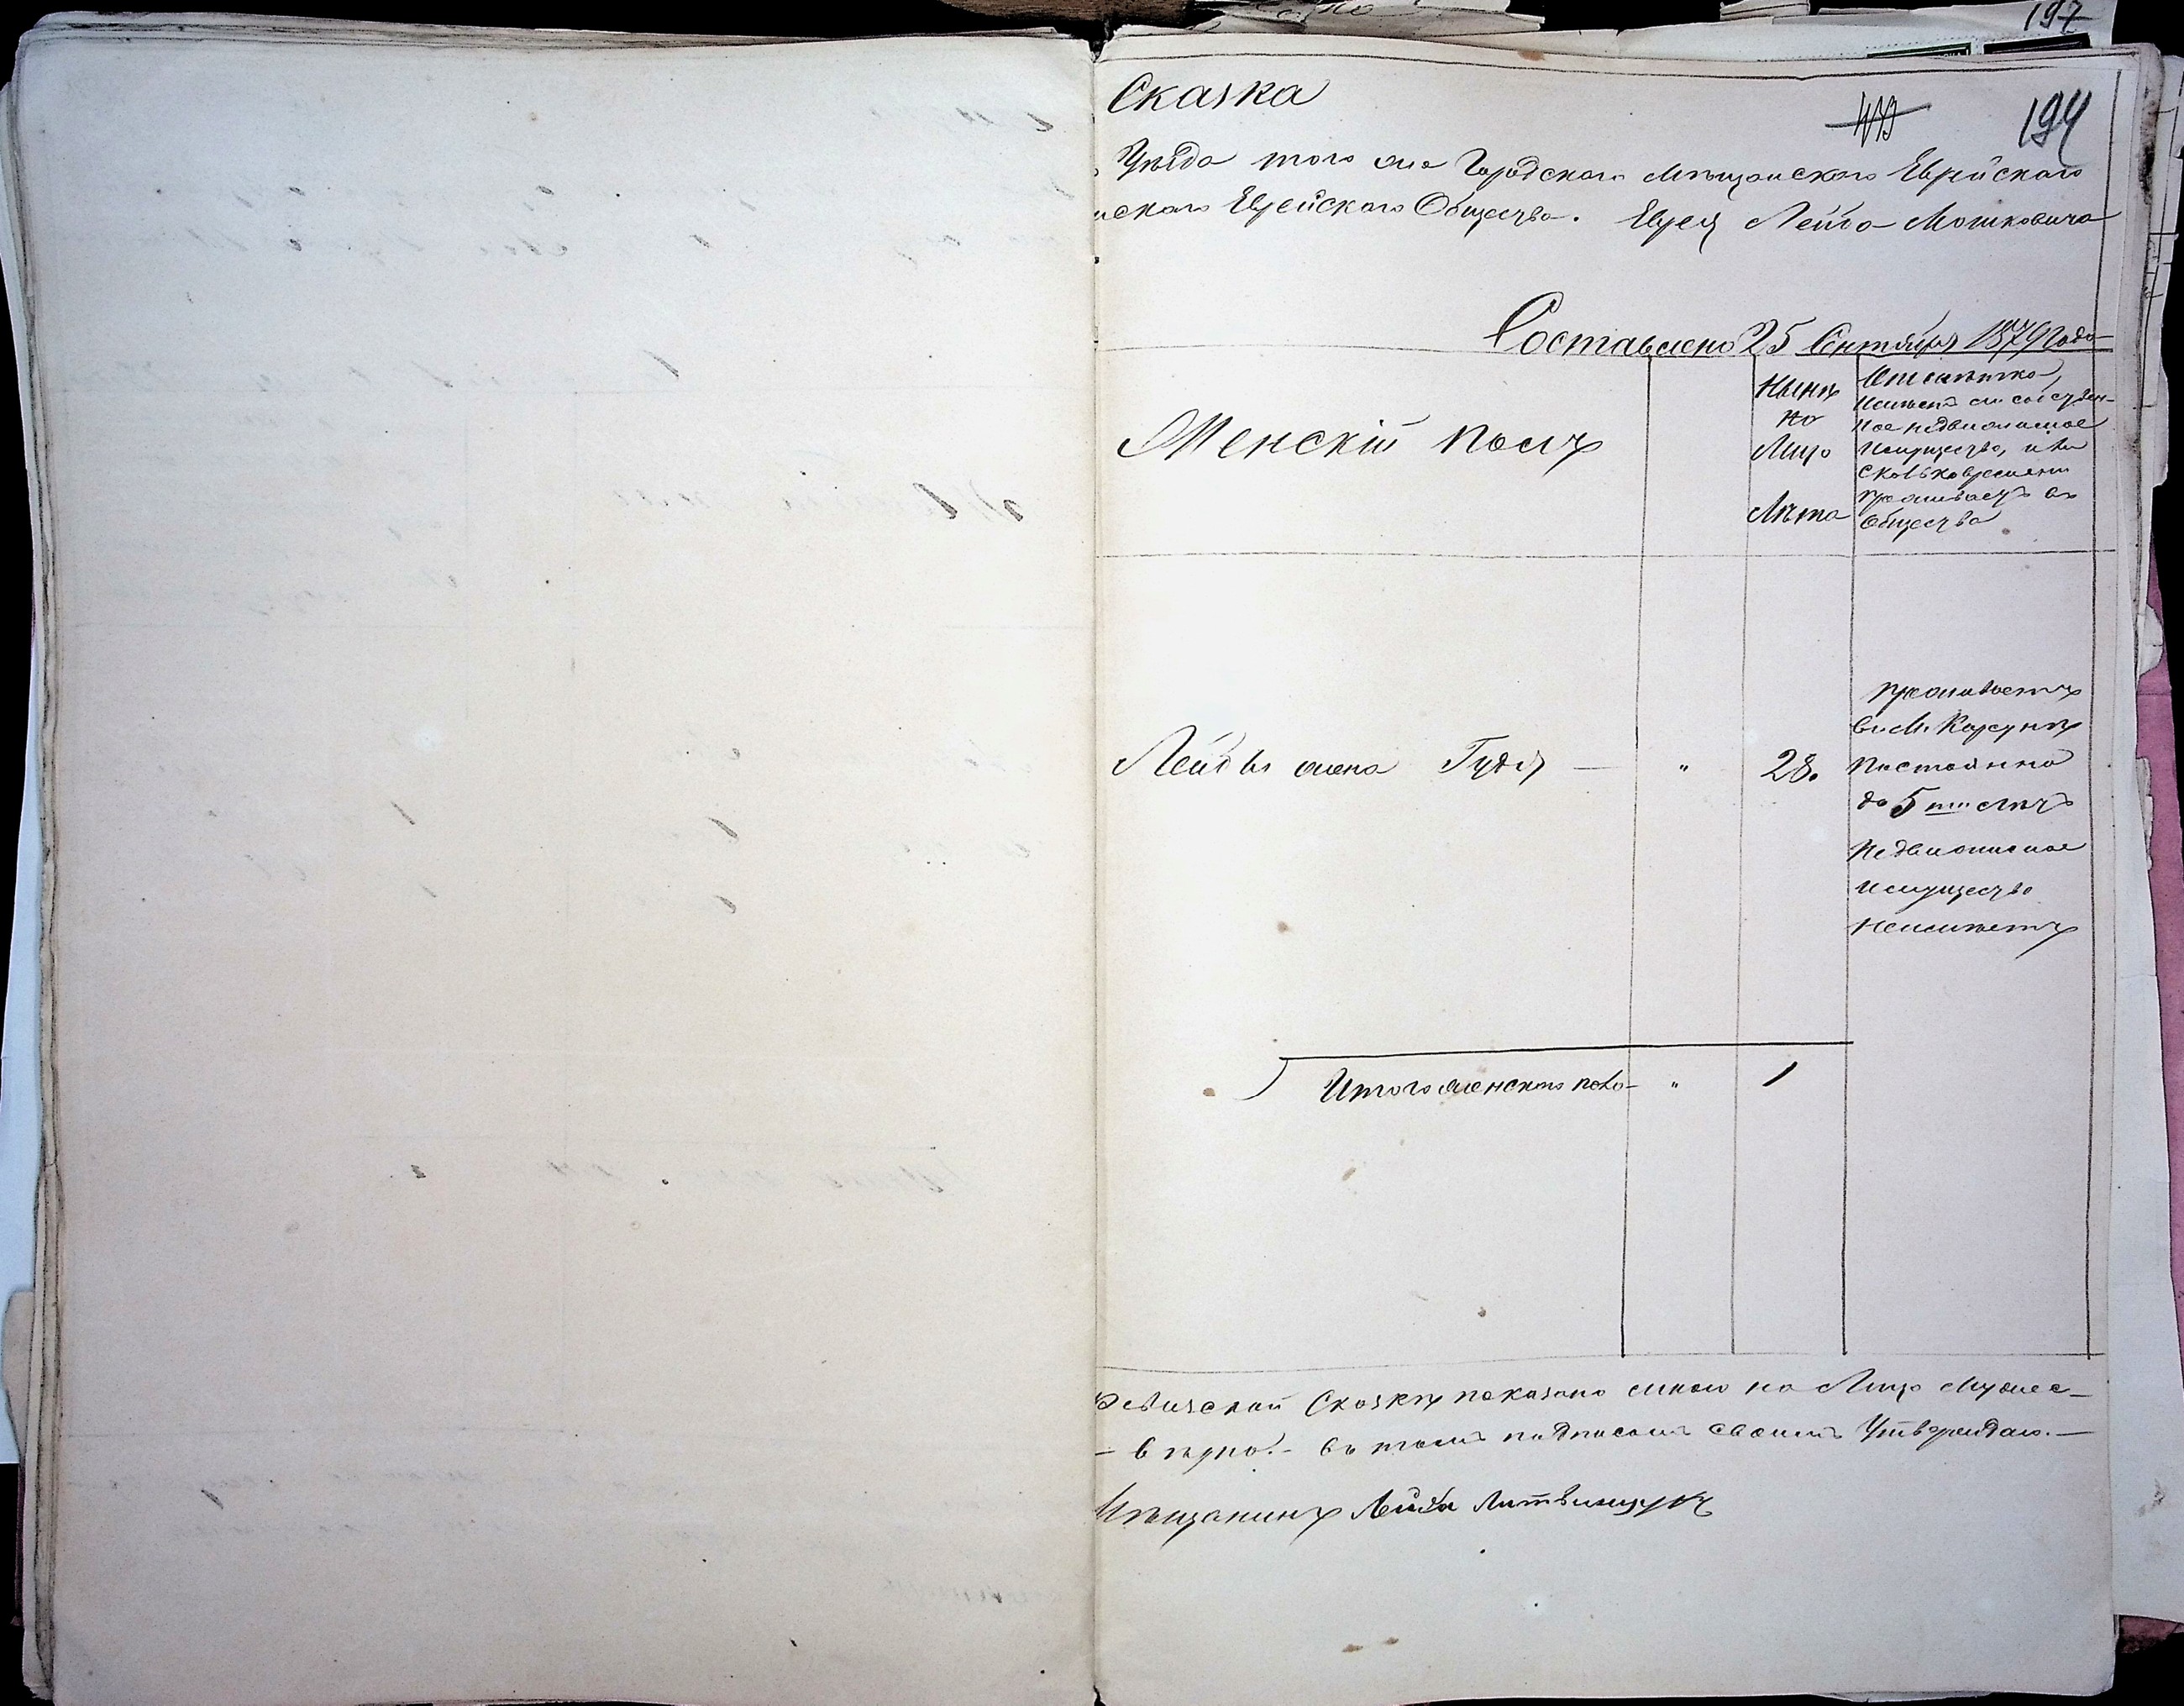 197
Сказка
194
Уѣзда того же Городского Мѣщанского Еврейского
нскаго Еврейскаго Общества. Еврея Лейба Мошковича
Составлено 25 Сентября 1879 Года
Женскій полъ
Нынѣ
на
Лицо
Лѣта
Отмѣтка,
Имѣетъ ли собствен-
ное недвижимое
Имущество, и
сколько времени
Проживаетъ въ
Обществѣ
Лейбы жена Гудя — " 28.
проживаетъ
въ М. Корсунѣ
Постоянно
до 5 ти лѣтъ
Недвижимое
Имущество
неимѣетъ
Итого женского пола " 1
Ревизской Сказкѣ показано мною на Лицо Мужес-
- вѣрно.- въ томъ подписомъ своимъ Утверждаю.—
Мѣщанинъ Лейба Литвинщукъ